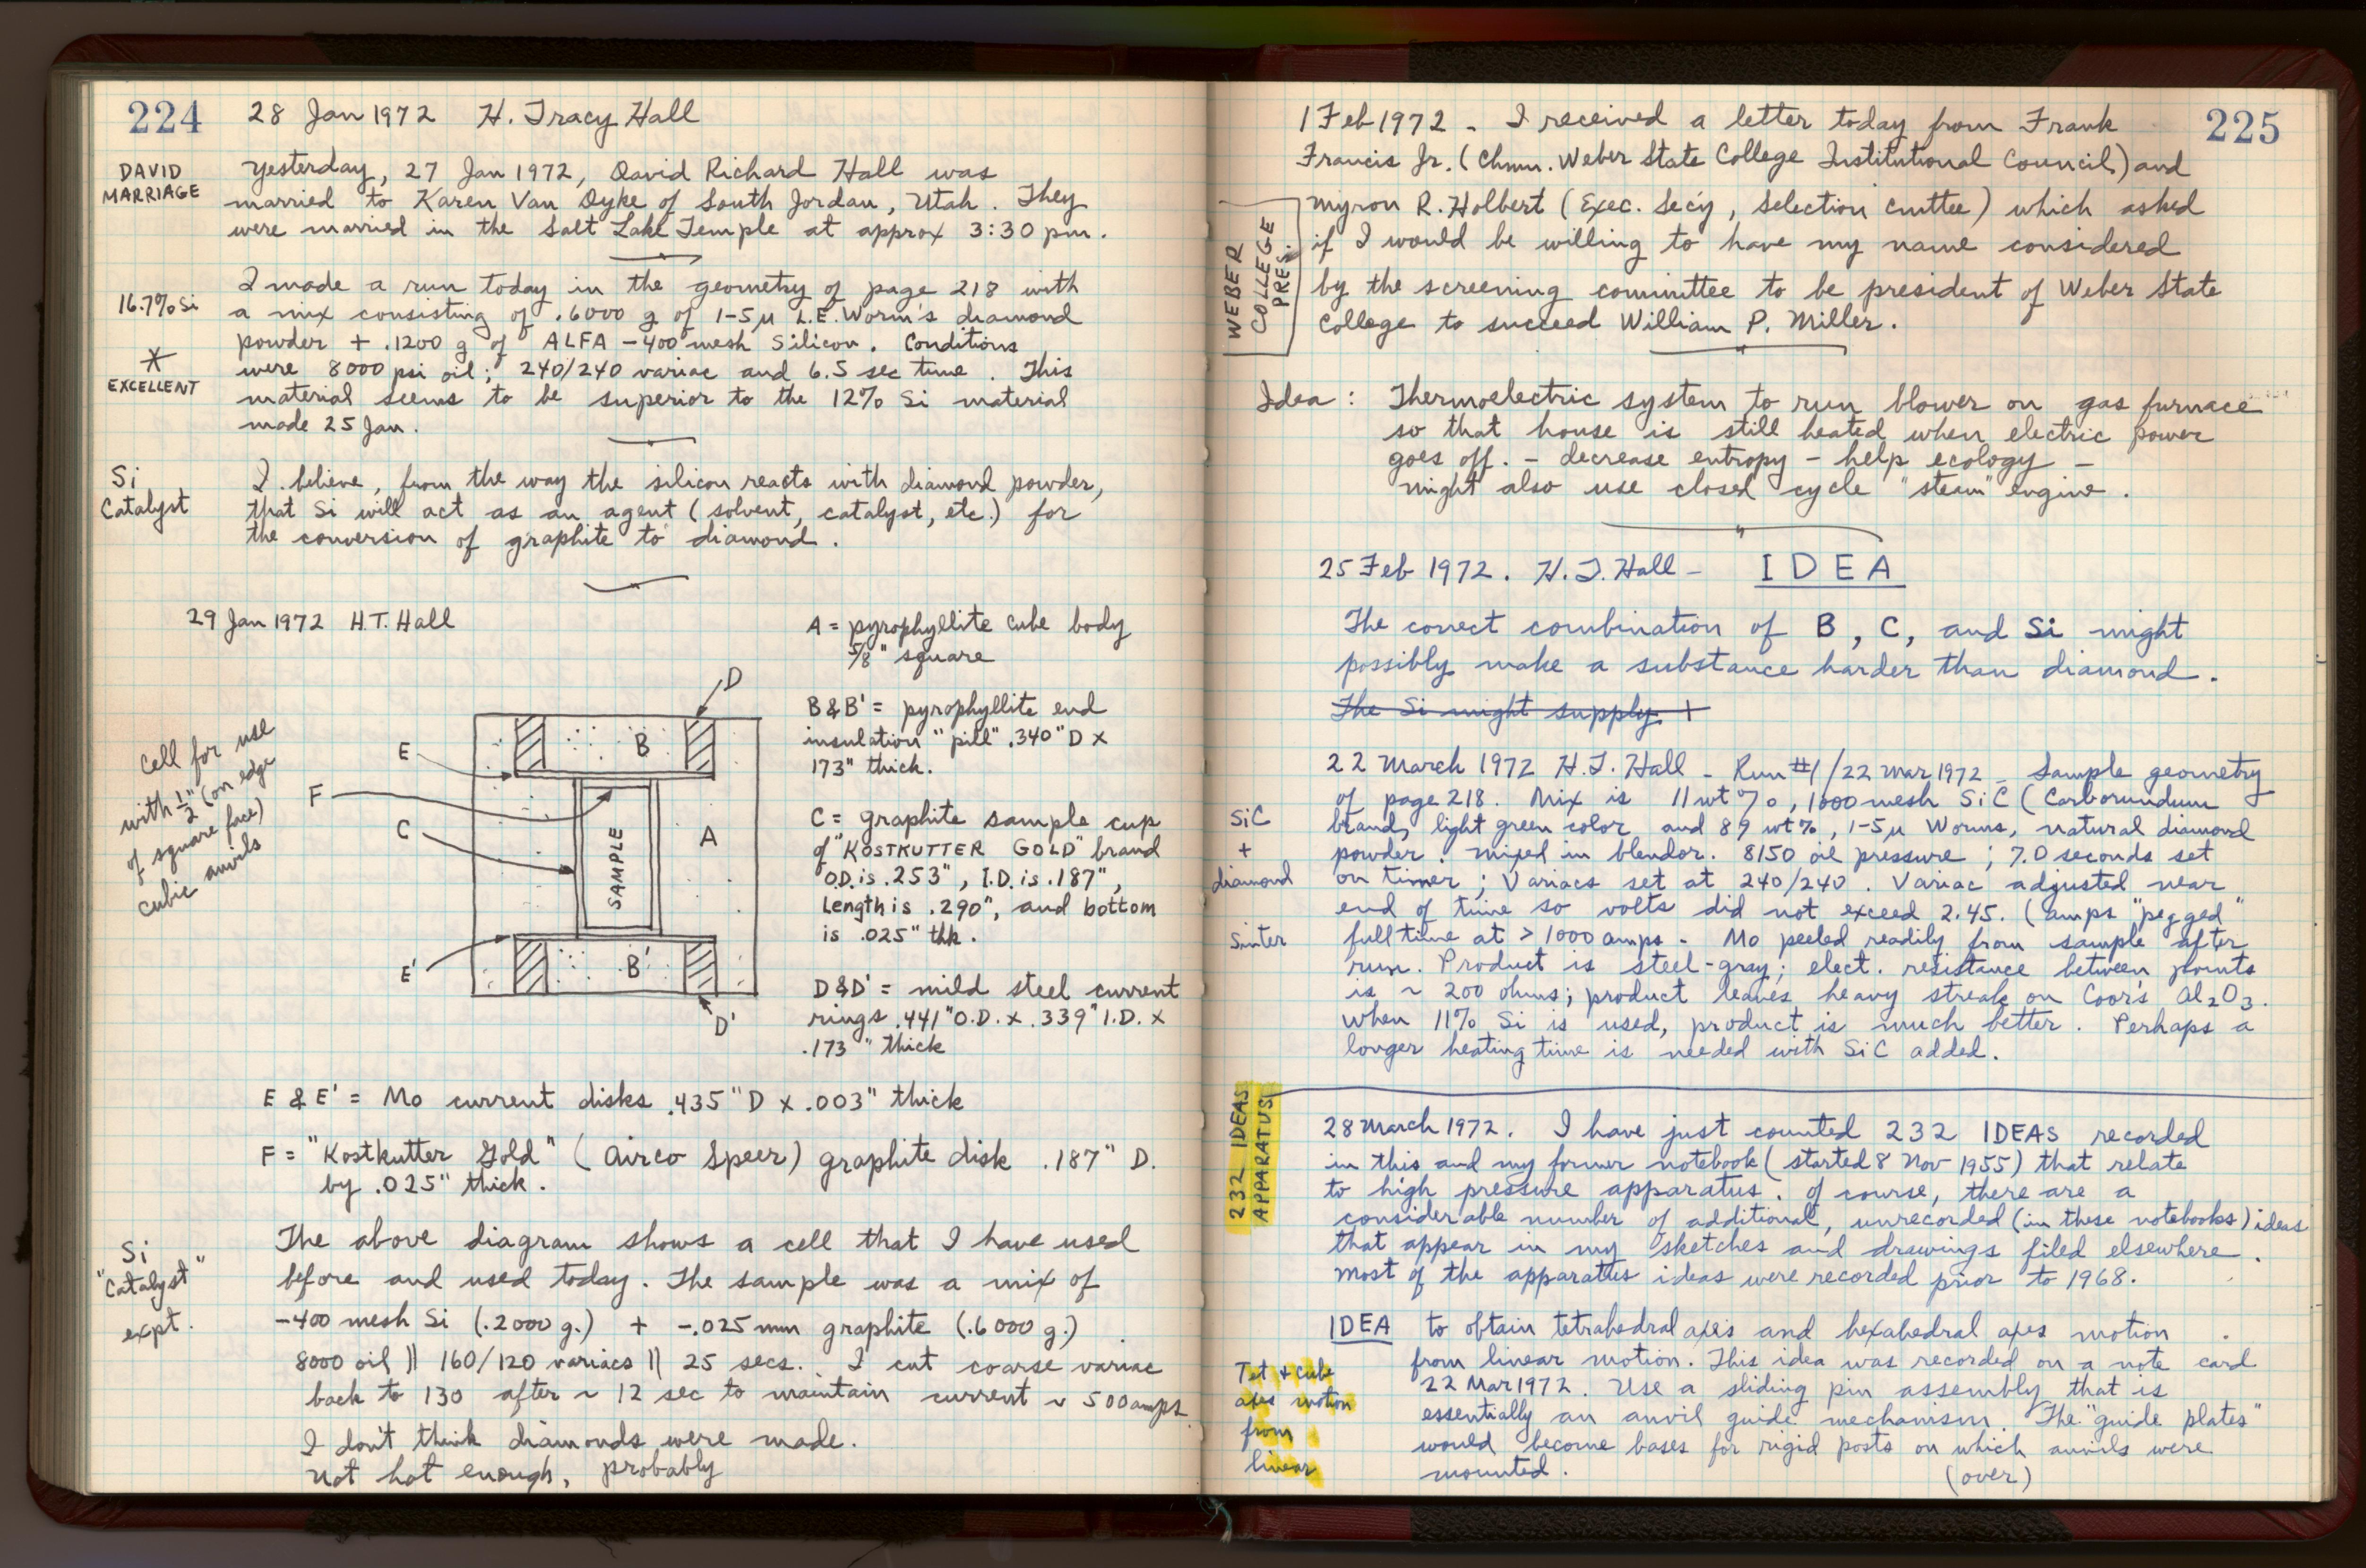 224
28 Jan 1972 H. Tracy Hall
DAVID
MARRIAGE
Yesterday, 27 Jan 1972, David Richard Hall was
married to Karen Van Dyke of South Jordan, Utah. They
were married in the Salt Lake Temple at approx 3:30 pm.
16.7% Si
*
EXCELLENT
I made a run today in the geometry of page 218 with
a mix consisting of .6000 g of 1-5μ L.E. Worm's diamond
powder + .1200 g of ALFA -400 mesh Silicon. Conditions
were 8000 psi oil; 240/240 variac and 6.5 sec time. This
material seems to be superior to the 12% Si material
made 25 Jan.
Si
Catalyst
I believe, from the way the silicon reacts with diamond powder,
that Si will act as an agent (solvent, catalyst, etc.) for
the conversion of graphite to diamond.
29 Jan 1972 H.T. Hall
Cell for use
with 1/2" (on edge
of square face)
cubic anvils
D
E
B
F
C
SAMPLE
A
E'
B'
D'
A = pyrophyllite cube body
5/8" square
B & B' = pyrophyllite end
insulation "pill" .340" D x
173" thick.
C = graphite sample cup
of "KOSTKUTTER GOLD" brand
O.D. is .253", I.D. is .187",
Length is .290", and bottom
is .025" thk.
D & D' = mild steel current
rings .441" O.D. x .339" I.D. x
.173" thick
E & E' = Mo current disks .435" D x .003" thick
F = "Kostkutter Gold" (Airco Speer) graphite disk .187" D.
by .025" thick.
Si
"Catalyst"
expt.
The above diagram shows a cell that I have used
before and used today. The sample was a mix of
-400 mesh Si (.2000 g.) + -.025 mm graphite (.6000 g.)
8000 oil || 160/120 variacs || 25 secs. I cut coarse variac
back to 130 after ~ 12 sec to maintain current ~ 500 amps
I don't think diamonds were made.
Not hot enough, probably
225
1 Feb 1972 - I received a letter today from Frank
Francis Jr. (Chmn. Weber State College Institutional Council) and
Myron R. Holbert (Exec. Sec'y, Selection Cmttee) which asked
if I would be willing to have my name considered
by the screening committee to be president of Weber State
College to succeed William P. Miller.
WEBER
COLLEGE
PRES.
Idea: Thermoelectric system to run blower on gas furnace
so that house is still heated when electric power
goes off. - decrease entropy - help ecology -
might also use closed cycle "steam" engine.
25 Feb 1972. H.T. Hall - IDEA
The correct combination of B, C, and Si might
possibly make a substance harder than diamond.
The Si might supply
SiC
+
diamond
Sinter
22 March 1972 H.T. Hall - Run #1/22 Mar 1972 - Sample geometry
of page 218. Mix is 11 wt %, 1000 mesh SiC (Carborundum
brand, light green color and 89 wt %, 1-5μ Worms, natural diamond
powder. Mixed in blendor. 8150 oil pressure; 7.0 seconds set
on timer; Variacs set at 240/240. Variac adjusted near
end of time so volts did not exceed 2.45. (amps "pegged"
full time at > 1000 amps - Mo peeled readily from sample after
run. Product is steel-gray; elect. resistance between points
is ~ 200 ohms; product leaves heavy streak on Coor's Al2O3.
When 11% Si is used, product is much better. Perhaps a
longer heating time is needed with SiC added.
232 IDEAS
APPARATUS
28 March 1972. I have just counted 232 IDEAS recorded
in this and my former notebook (started 8 Nov 1955) that relate
to high pressure apparatus. Of course, there are a
considerable number of additional, unrecorded (in these notebooks) ideas
that appear in my sketches and drawings filed elsewhere.
Most of the apparattus ideas were recorded prior to 1968.
Tet + cube
axes motion
from
linear
IDEA to obtain tetrahedral axes and hexahedral axes motion
from linear motion. This idea was recorded on a note card
22 Mar 1972. Use a sliding pin assembly that is
essentially an anvil guide mechanism. The "guide plates"
would become bases for rigid posts on which anvils were
mounted.
(over)